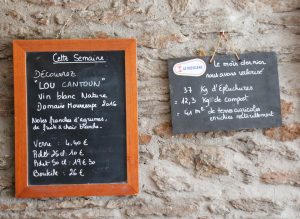 Cette Semaine
Découvrez
"LOU CANTOUN"
Vin blanc Nature
Domaine 2016
Notes franches d'agrumes,
de fruits à chair blanche.
Verre : 4.40 €
Pichet 25 cl : 10 €
Pichet 50 cl : 19 € 50
Bouteille : 26 €
Le mois dernier
nous avons valorisé
37 Kg d'épluchures
= 12,3 Kg de compost
= 41 m² de terres agricoles
enrichies naturellement